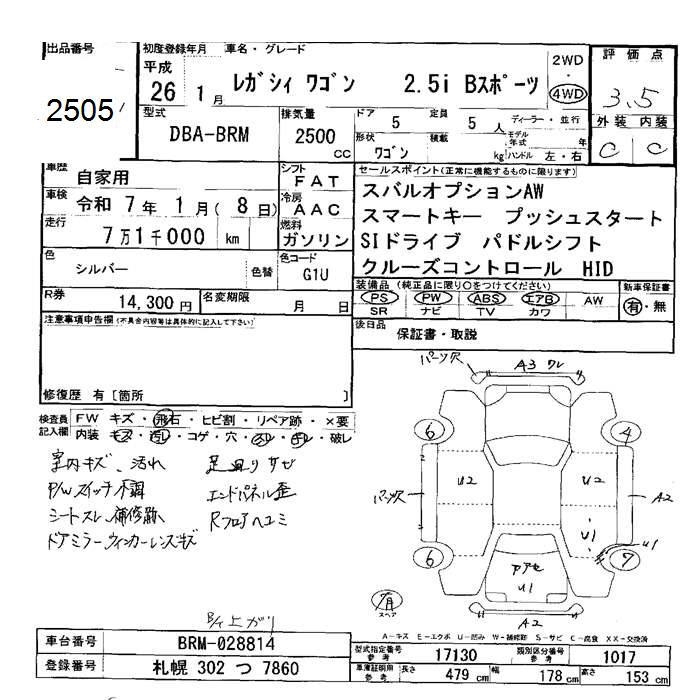 出品番号
2505
初度登録年月 車名・グレード
平成 26 1月 レガシィ ワゴン 2.5i Bスポーツ
2WD ・ 4WD
評価点
3.5
外装 内装
C C
型式
DBA-BRM
排気量
2500 cc
ドア 5 定員 5人 ディーラー・並行
形状 ワゴン 積載 kg モデル年式 年 ハンドル 左・右
車歴 自家用
シフト FAT
車検 令和 7年 1月 ( 8日)
冷房 AAC
走行 7万1千000 km
燃料 ガソリン
色 シルバー 色替
色コード G1U
R券 14,300円 名変期限 月 日
セールスポイント(正常に機能するものに限ります)
スバルオプションAW
スマートキー プッシュスタート
SIドライブ パドルシフト
クルーズコントロール HID
装備品 (純正品に限り○をつけてください)
PS PW ABS エアB AW
SR ナビ TV カワ
新車保証書
有・無
後日品 保証書・取説
注意事項申告欄(不具合内容等は具体的に記入して下さい)
修復歴 有 [箇所 ]
検査員記入欄
FW キズ・飛石・ヒビ割・リペア跡・×要
内装 キズ・汚レ・コゲ・穴・スレ・キレ・破レ
室内キズ、汚れ 足廻りサビ
P/Wスイッチ不調 エンドパネル歪
シートスレ、補修跡 Rフロアヘコミ
ドアミラーウィンカーレンズキズ
B/C上ガリ
パーツ欠 A3 ワレ
6 4
U2 U2
パーツ欠 A2
U1 U1
6 7
アアセ
U1
A2
スペア
A-キズ E-エクボ U-凹み W-補修跡 S-サビ C-腐食 XX-交換済
車台番号 BRM-028814
登録番号 札幌 302 つ 7860
型式指定番号 参考 17130 類別区分番号 参考 1017
車庫証明用 参考 長さ 479cm 幅 178cm 高さ 153cm